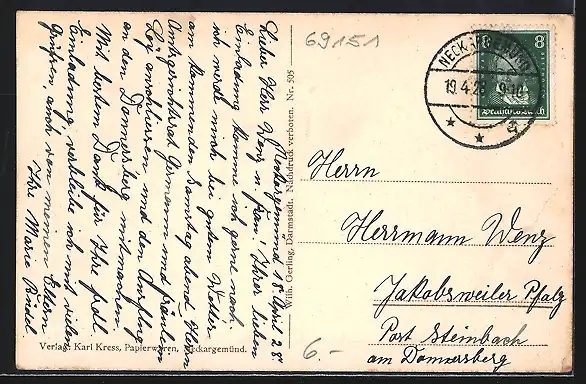 69151
NECKARGEMÜND
19.4.28 9-10
8
Deutsches Reich
Neckargemünd 18. April 28.
Lieber Herr Wenz u. Frau! Ihrer lieben
Einladung komme ich gerne nach.
Ich werde mich bei gutem Wetter
am kommenden Samstag abend Herrn
Amtsgerichtsrat Germann und Fräulein
anschliessen und den Ausflug
an den Donnersberg mitmachen.
Mit bestem Dank für Ihre frdl.
Einladung verbleibe ich mit vielen
Grüssen, auch von meinen Eltern
Ihre Marie
Wilh. Gerling, Darmstadt. Nachdruck verboten. Nr. 505
Herrn
Herrmann Wenz
Jakobsweiler Pfalz
Post Steinbach
am Donnersberg
6.-
Verlag: Karl Kress, Papierwaren, Neckargemünd.